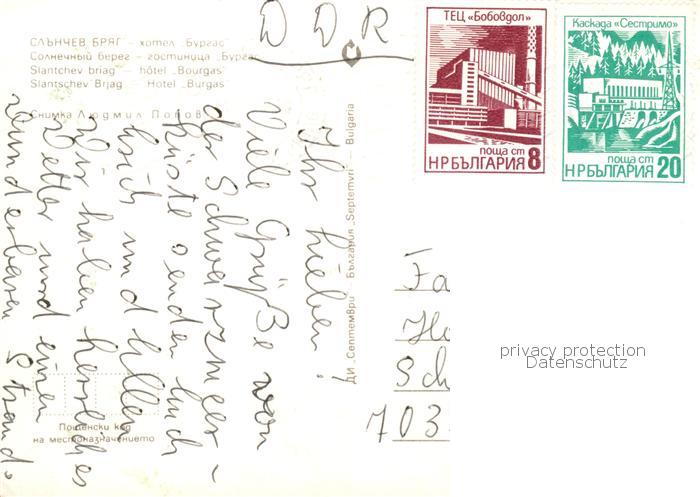 СЛЪНЧЕВ БРЯГ — хотел „Бургас“
Солнечный берег — гостиница „Бургас
Slantchev briag — hôtel „Bourgas“
Slantschev Brjag — Hotel „Burgas“
Снимка Людмил Попов
DDR
ТЕЦ „Бобовдол“
поща ст
НРБЪЛГАРИЯ 8
Каскада „Сестримо“
поща ст
НРБЪЛГАРИЯ 20
Ihr Lieben!
Viele Grüße von
der Schwarzmeer-
küste senden Euch
und
Wir haben herrliches
Wetter und einen
wunderbaren Strand.
ДИ „Септември“ България „Septemvri“ Bulgaria
Fa
Ho
Sch
703
privacy protection
Datenschutz
Пощенски код
на местоназначението